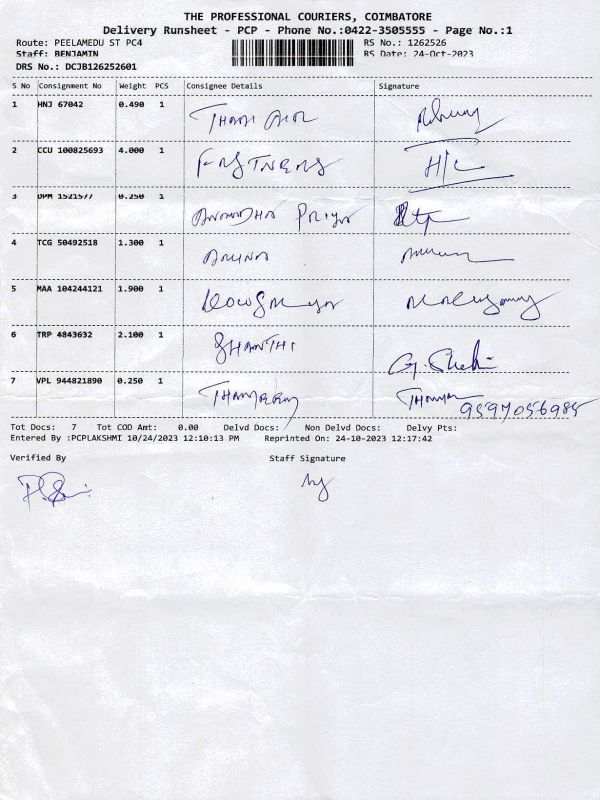 THE PROFESSIONAL COURIERS, COIMBATORE
Delivery Runsheet - PCP - Phone No.:0422-3505555 - Page No.:1
Route: PEELAMEDU ST PC4 RS No.: 1262526
Staff: BENJAMIN RS Date: 24-Oct-2023
DRS No.: DCJB126252601
S No Consignment No Weight PCS Consignee Details Signature
1 HNJ 67042 0.490 1
2 CCU 100825693 4.000 1
3 DPM 1521577 0.250 1 PRIYA
4 TCG 50492518 1.300 1
5 MAA 104244121 1.900 1
6 TRP 4843632 2.100 1 SHANTHI
7 VPL 944821890 0.250 1
9597056985
Tot Docs: 7 Tot COD Amt: 0.00 Delvd Docs: Non Delvd Docs: Delvy Pts:
Entered By :PCPLAKSHMI 10/24/2023 12:10:13 PM Reprinted On: 24-10-2023 12:17:42
Verified By Staff Signature